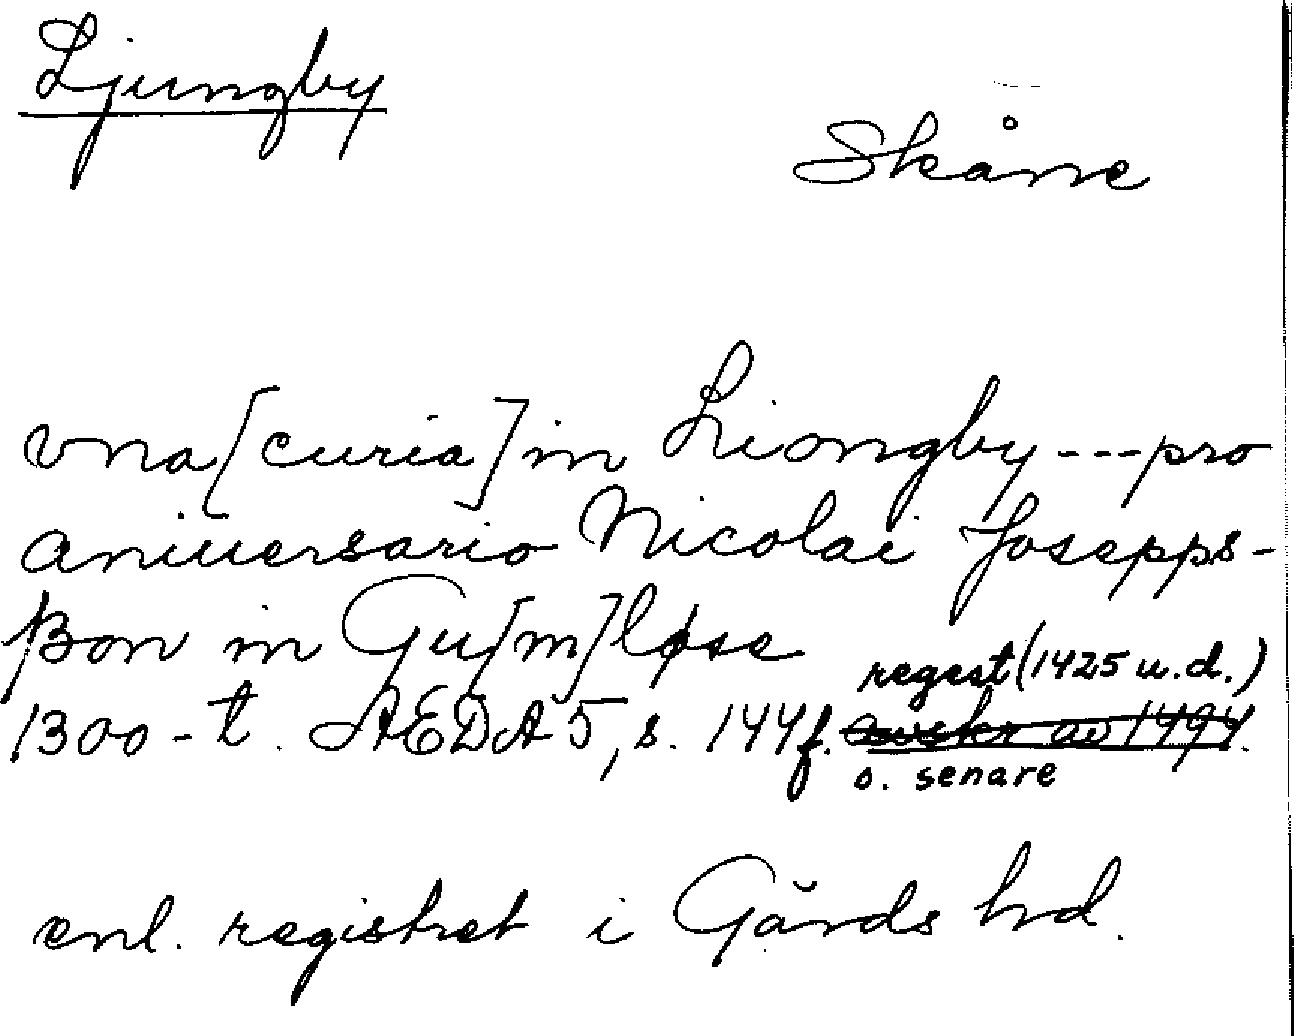 Ljungby
Skåne
vna [curia] in Liongby --- pro
aniuersario Nicolai Josepps-
ßon in Gu[m]løse
regest (1425 u.d.)
1300-t. AEDA 5, s. 144 f. avskr av 1494.
o. senare
enl. registret i Gärds hd.